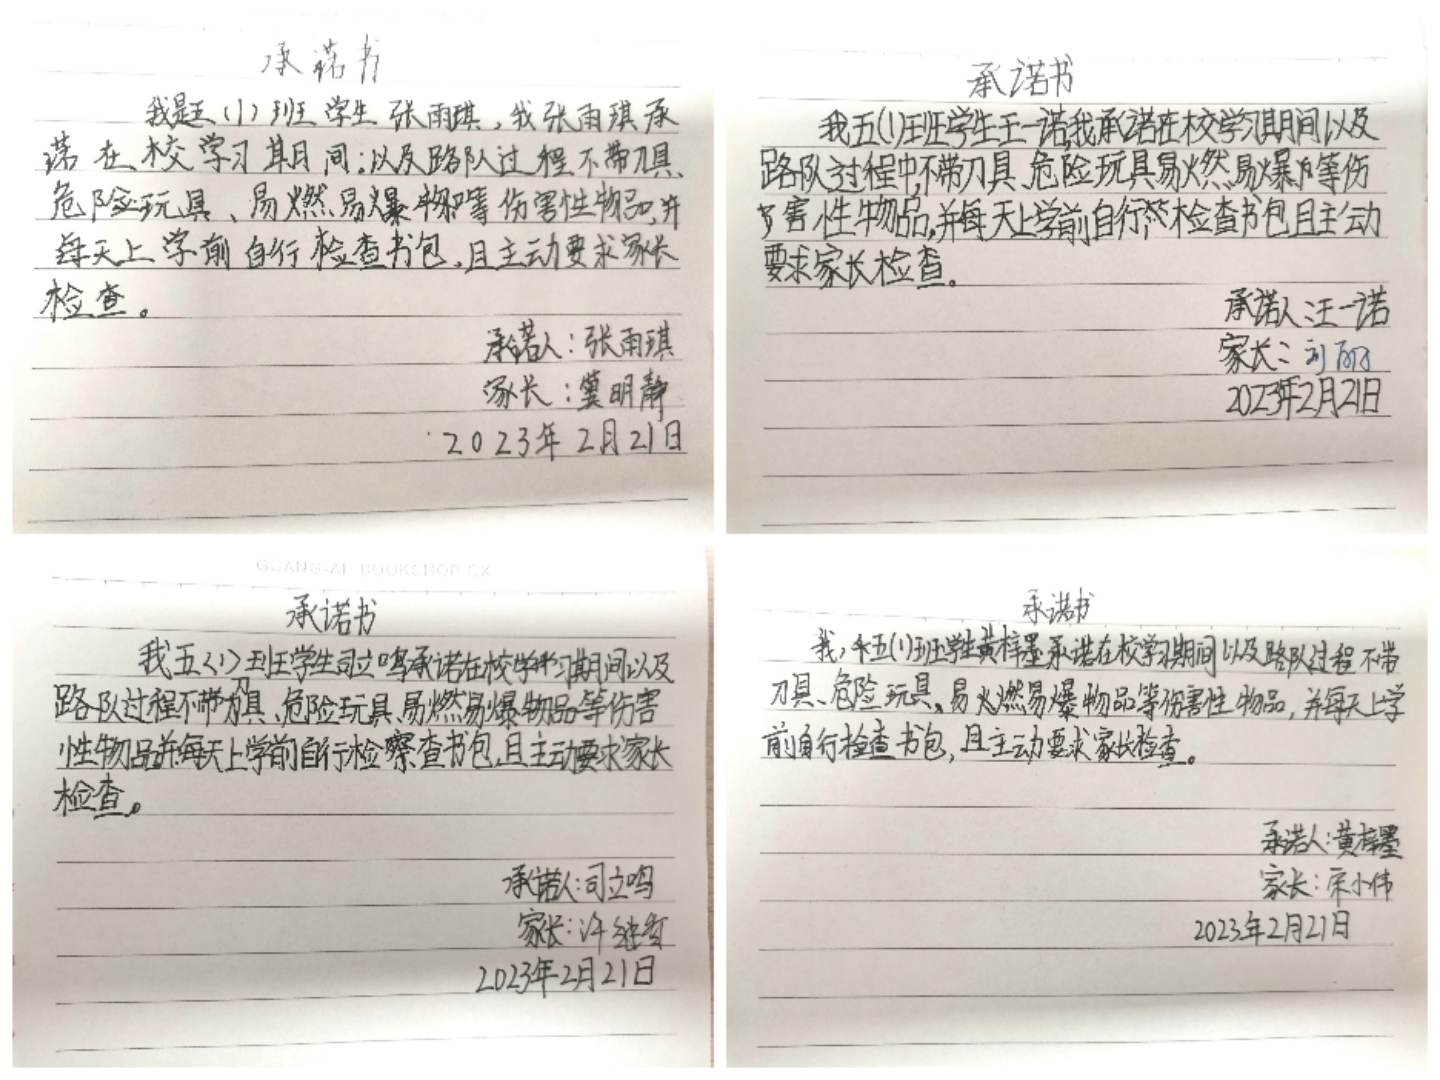 承诺书
我是五(1)班学生张雨琪,我张雨琪承
诺在校学习期间;以及路队过程不带刀具、
危险玩具、易燃易爆物等伤害性物品,并
每天上学前自行检查书包,且主动要求家长
检查。
承诺人:张雨琪
家长:冀明静
2023年2月21日
承诺书
我五(1)班学生王一诺,我承诺在校学习期间以及
路队过程中,不带刀具、危险玩具易燃易爆等伤
害性物品,并每天上学前自行检查书包且主动
要求家长检查。
承诺人:汪一诺
家长:刘丽
2023年2月21日
GUANG-AI BOOKSHOP CX
承诺书
我五(1)班学生司立鸣承诺在校学习期间以及
路队过程不带刀具、危险玩具、易燃易爆物品等伤害
性物品并每天上学前自行检查书包,且主动要求家长
检查。
承诺人:司立鸣
家长:许继红
2023年2月21日
承诺书
我,五(1)班学生黄梓墨承诺在校学习期间以及路队过程不带
刀具、危险玩具,易燃易爆物品等伤害性物品,并每天上学
前自行检查书包,且主动要求家长检查。
承诺人:黄梓墨
家长:宋小伟
2023年2月21日